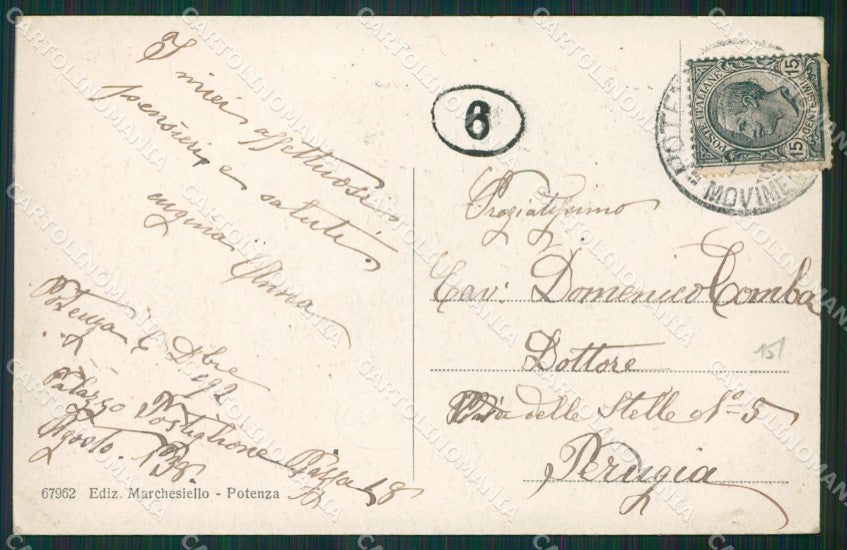 I miei affettuosi
pensieri, e saluti.
cugina Anna
Potenza 6 Dbre
192
Palazzo Postiglione Piazza 18
Agosto.
67962 Ediz. Marchesiello - Potenza
6
POSTE ITALIANE
CENTESIMI 15
15
POTENZA
MOVIME
Pregiatissimo
Cav: Domenico Comba
Dottore
Via delle Stelle No 5
Perugia
15/
CARTOLINOMANIA